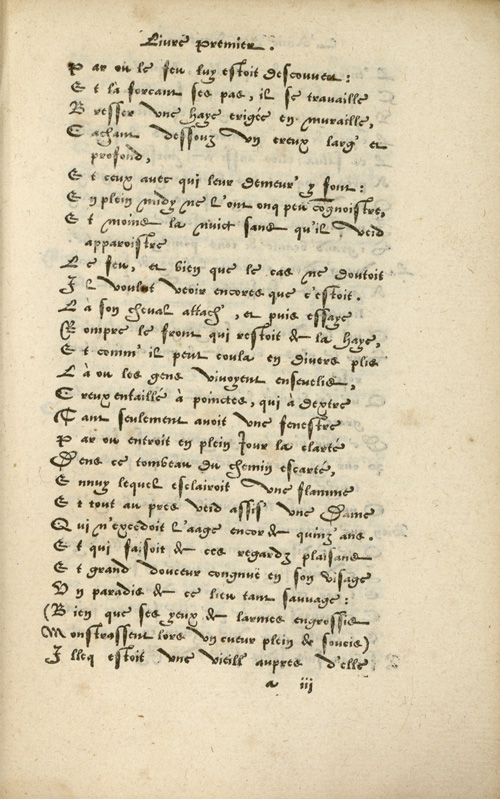 Livre premier.
Par où le feu luy estoit descouvert:
Et là forcant ses pas, il se travaille
Bresser une haye erigée en muraille,
Cachant dessouz un creux large et
profond,
Et ceux avec qui leur demeur' y font:
En plein midy ne l'ont onq peu cognoistre,
Et moins la nuict sans qu'il veid
apparoistre
Le feu, et bien que le cas ne doutoit
Il voulut veoir encores que c'estoit.
Là son cheval attach', et puis essaye
Rompre le front qui restoit de la haye,
Et comm' il peut coula en divers plis
Là où les gens vivoyent ensevelis,
Creux entaillé à poinctes, qui à dextre
Tant seulement avoit une fenestre
Par où entroit en plein Jour la clarté
Dens ce tombeau du chemin escarté,
Ennuy lequel esclairoit une flamme
Et tout au pres veid assis' une Dame
Qui n'excedoit l'aage encor de quinz' ans.
Et qui faisoit de ces regardz plaisans
Et grand' douceur congnuë en son visage
Un paradis de ce lieu tant sauvage:
(Bien que ses yeux de larmes engrossis
Monstrassent lors un cueur plein de soucis)
Illeq estoit une vieill' aupres d'elle
a iii